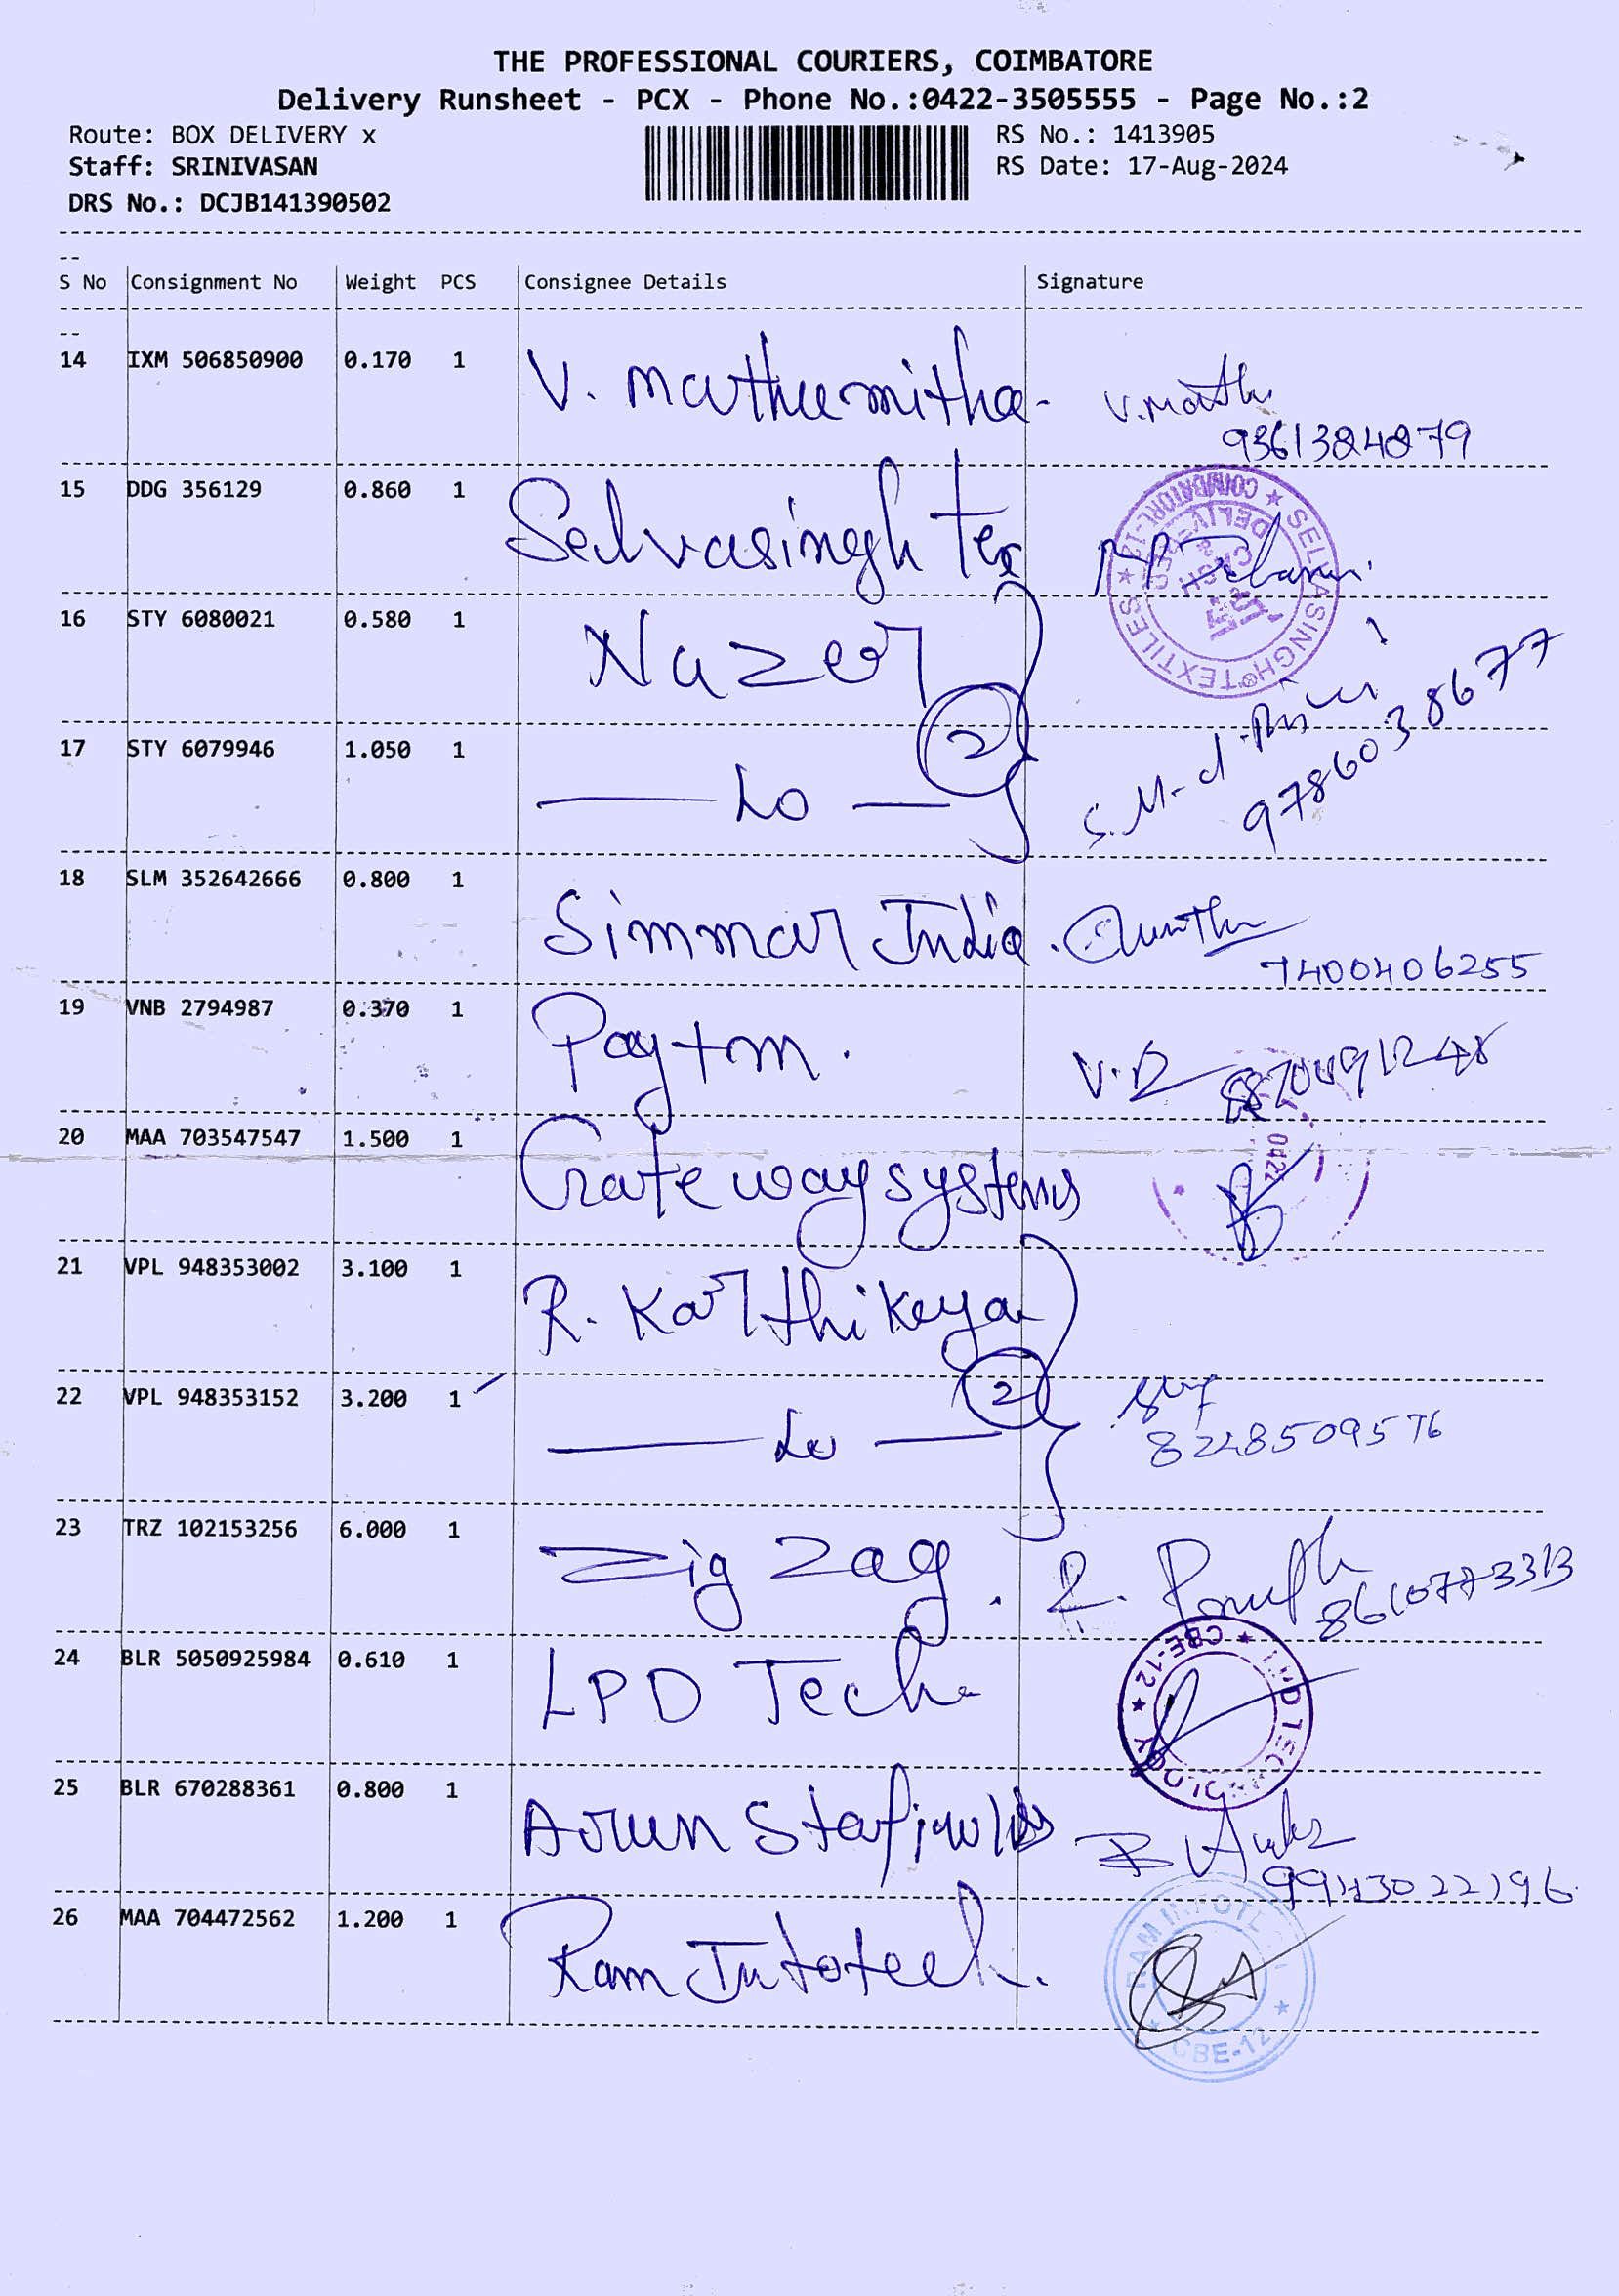 THE PROFESSIONAL COURIERS, COIMBATORE
Delivery Runsheet - PCX - Phone No.:0422-3505555 - Page No.:2
Route: BOX DELIVERY x
RS No.: 1413905
Staff: SRINIVASAN
RS Date: 17-Aug-2024
DRS No.: DCJB141390502
S No Consignment No Weight PCS Consignee Details Signature
14 IXM 506850900 0.170 1 V. Mathumitha V.Mathu
9361384879
15 DDG 356129 0.860 1 Selvasingh Tex
★ SELVASINGH TEXTILES ★ COIMBATORE-12
16 STY 6080021 0.580 1 Nazer
17 STY 6079946 1.050 1 Do 2
9786038677
18 SLM 352642666 0.800 1 Simmar India.
7400406255
19 VNB 2794987 0.370 1 Paytm.
20 MAA 703547547 1.500 1 Gateway systems
0422
21 VPL 948353002 3.100 1 R. Karthikeya
22 VPL 948353152 3.200 1 Do 2
8248509576
23 TRZ 102153256 6.000 1 Zig Zag.
24 BLR 5050925984 0.610 1 LPD Tech
★ CBE-12 ★
25 BLR 670288361 0.800 1 Arun
9943022196
26 MAA 704472562 1.200 1 Ram Infotech.
RAM INFOTECH ★ CBE-12 ★